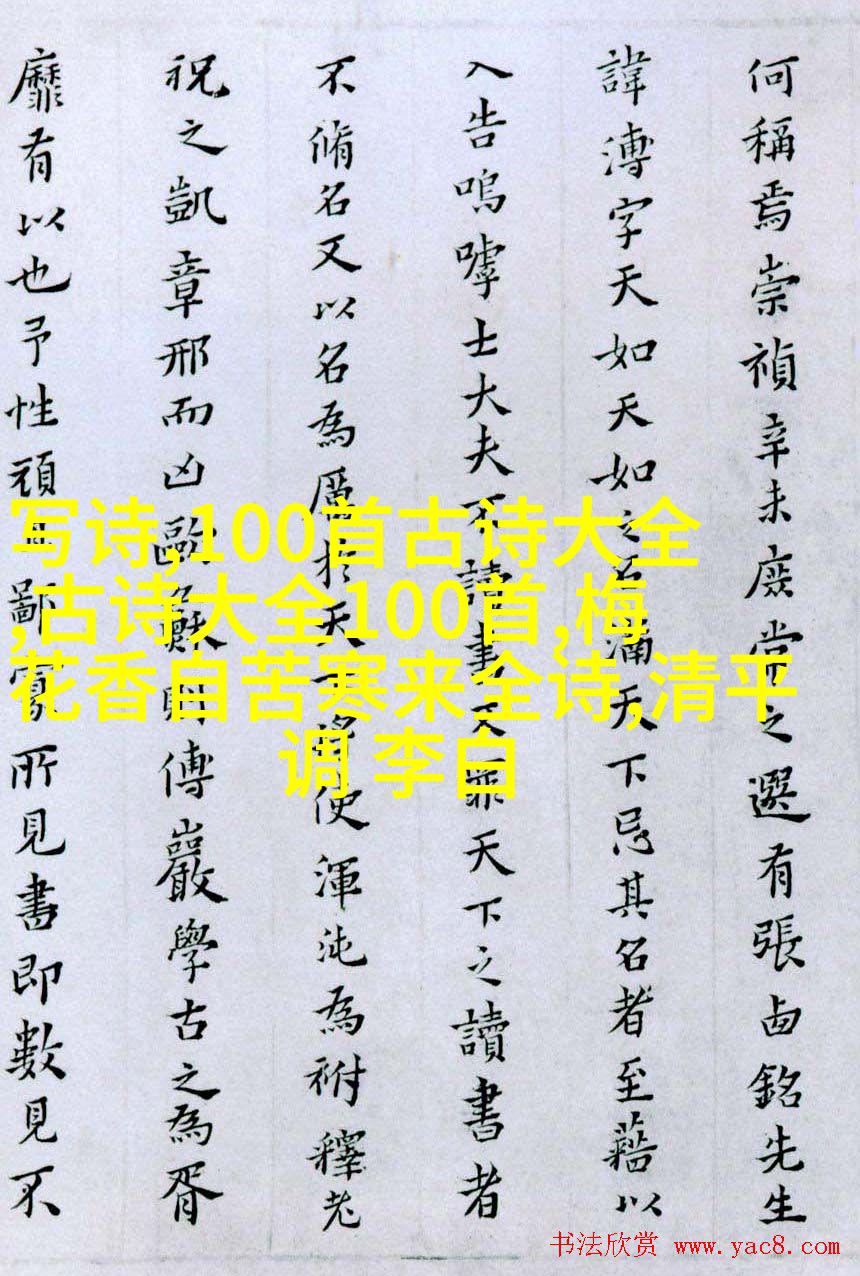 何稱焉崇禎辛未庶常之選有張西銘先生
諱溥字天如天如之名滿天下忌其名者至藉以
入告嗚嘑士大夫不讀書又罪天下之讀書者
不脩名又以名為厲於天下將使渾沌為祔釋老
祝之凱章邢而凶歐蘇則傅巖學古之為胥
靡有以也予性頑且鄙寡所見書即數見不
写诗,100首古诗大全
,古诗大全100首,梅
花香自苦寒来全诗,清平
调 李白
书法欣赏 www.yac8.com